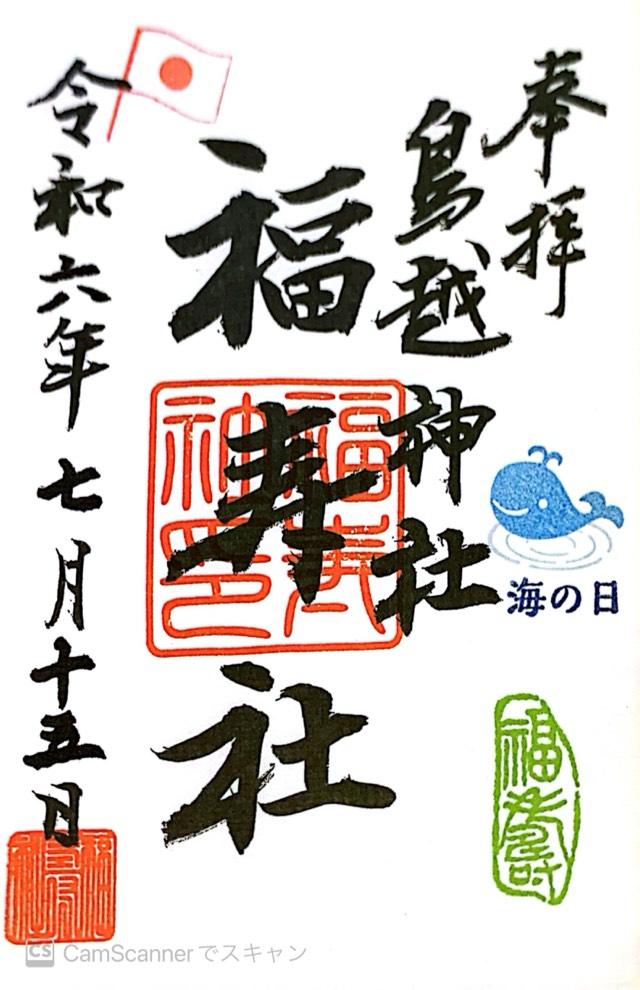 奉拝
鳥越神社
海の日
福壽
福寿社
令和六年七月十五日
CS CamScannerでスキャン